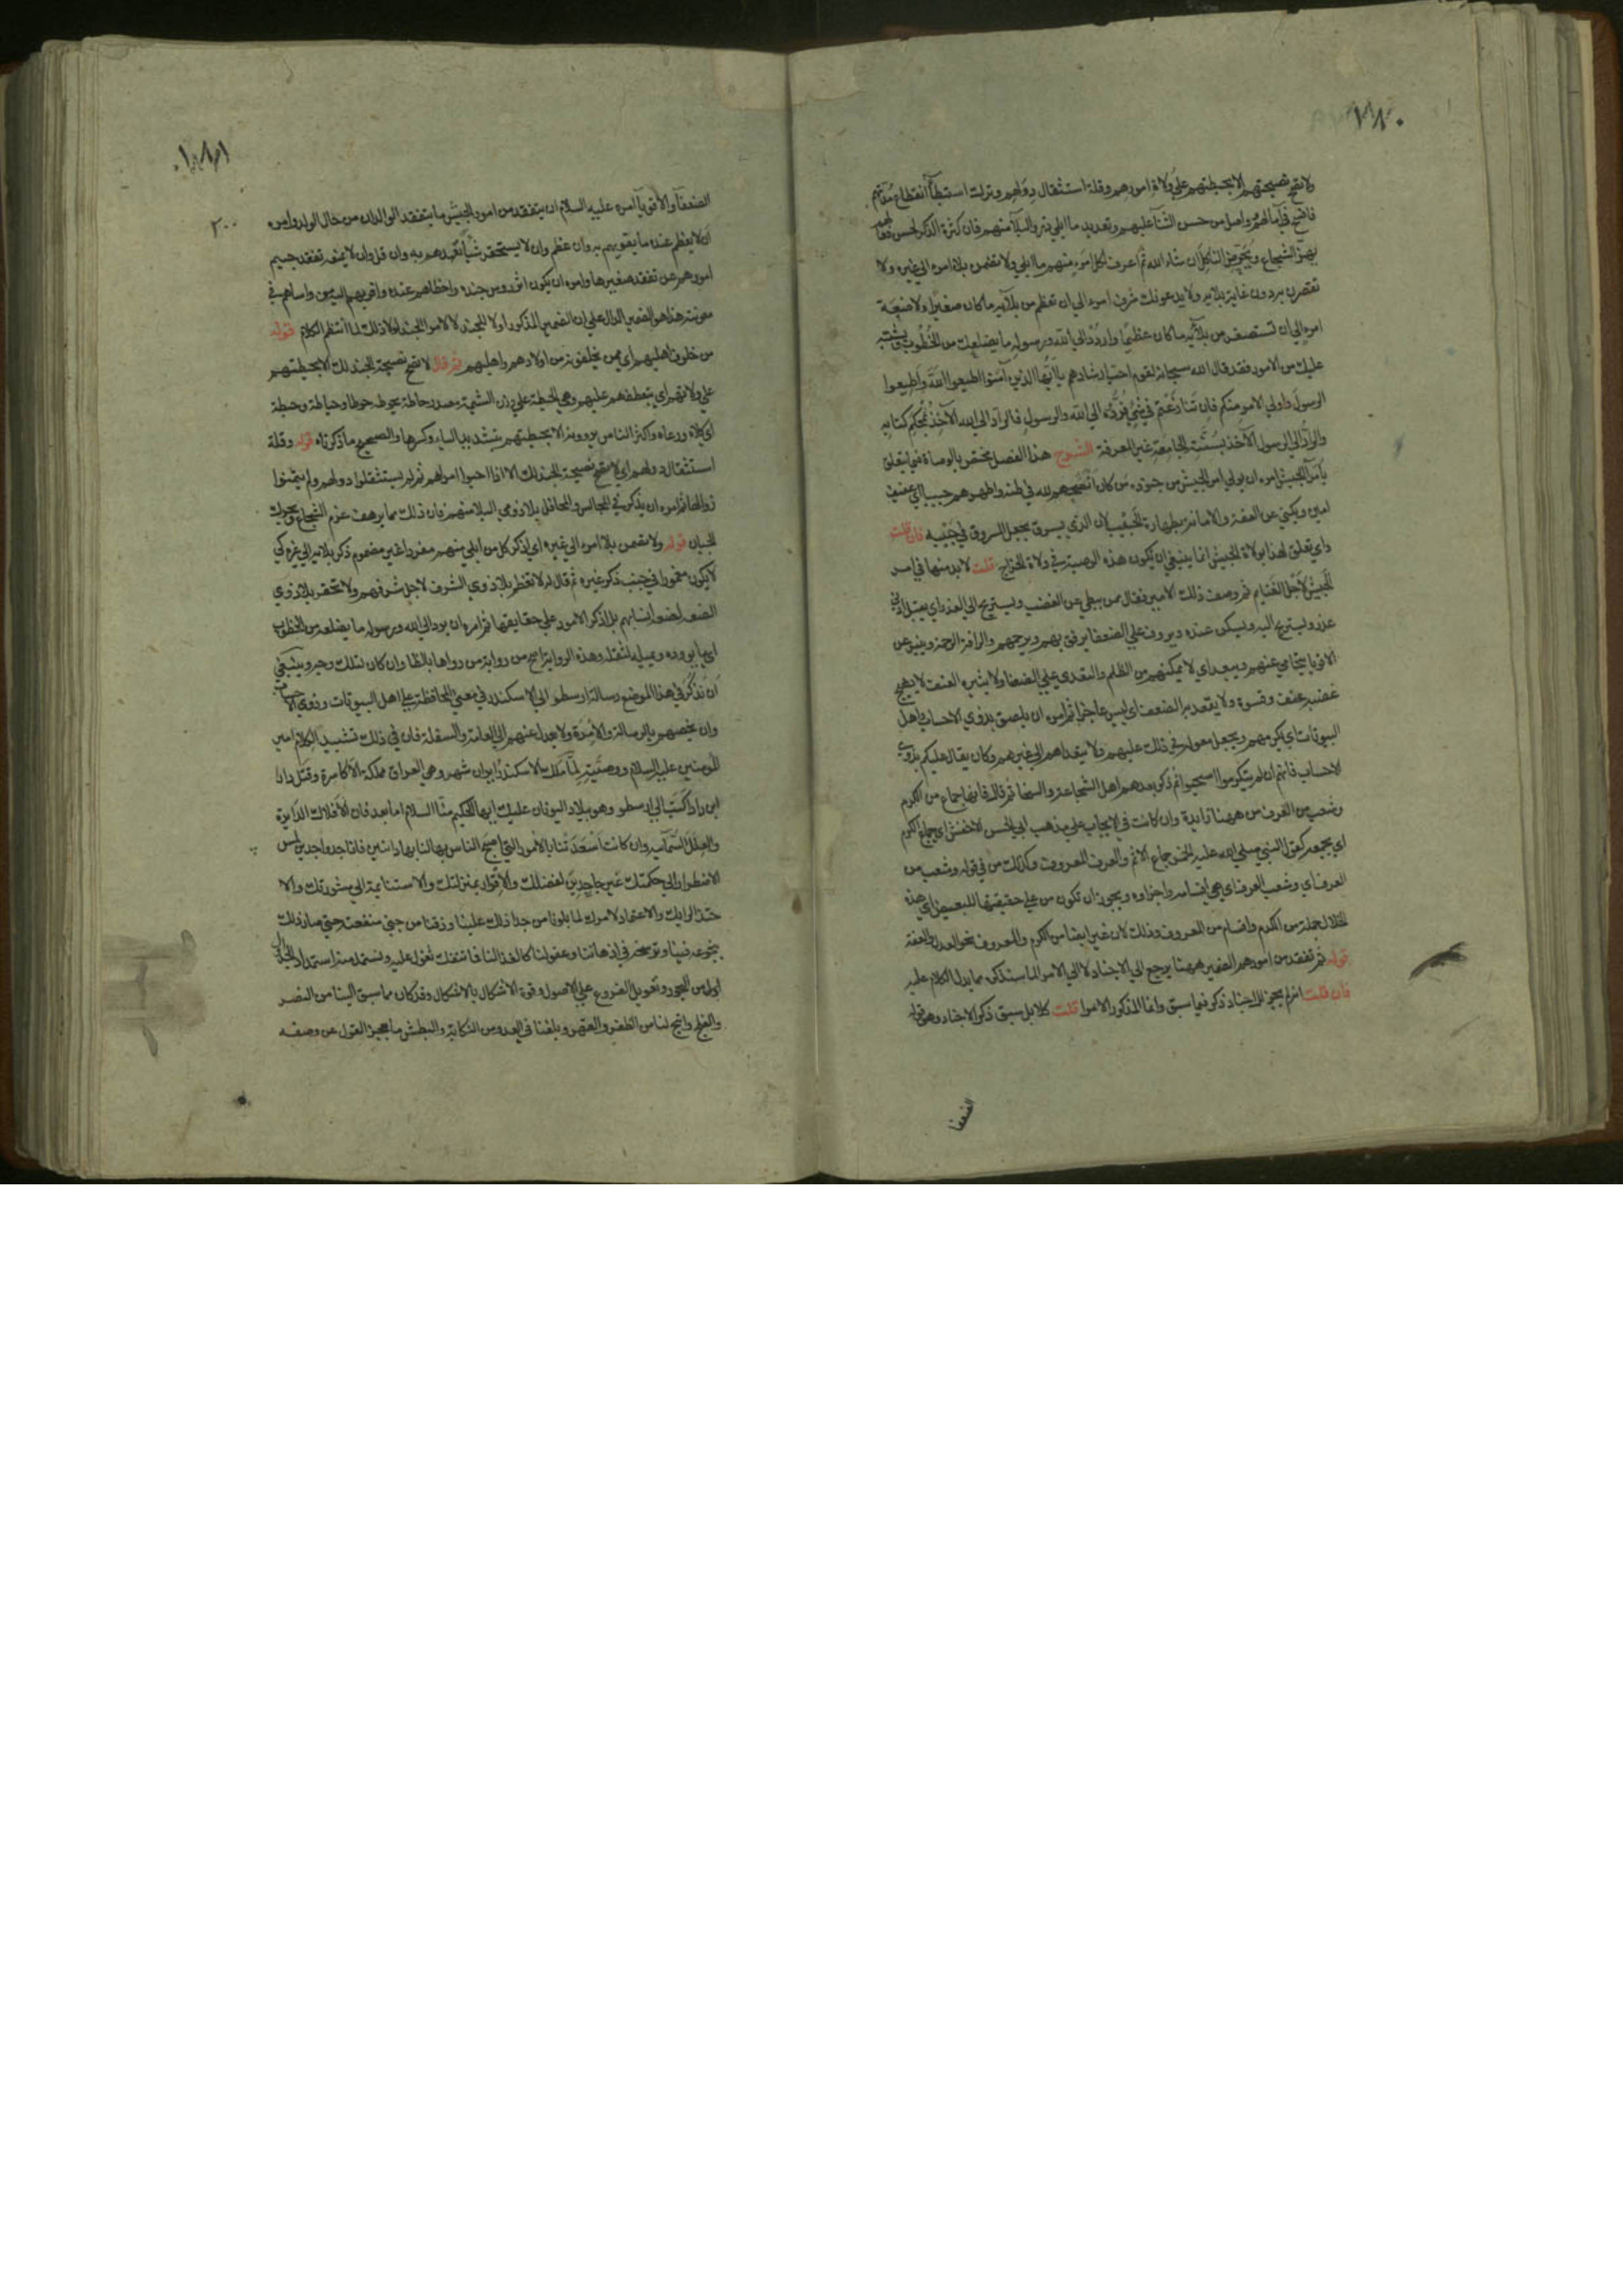 ١٨٠
ولا تصح نصيحتهم الا بحيطتهم على ولاة امورهم وقلة استثقال دولهم وترك استبطآء انقطاع مدتهم
فافسح في آمالهم وواصل من حسن الثنآء عليهم وتعديد ما ابلى ذوو البلآء منهم فان كثرة الذكر لحسن فعالهم
يهز الشجاع ويحرض الناكل ان شاء الله ثم اعرف لكل امرء منهم ما ابلى ولا تضمن بلاء امرء الى غيره ولا
تقصرن به دون غاية بلائه ولا يدعونك شرف امرء الى ان تعظم من بلآئه ما كان صغيرا ولا ضعة
امرء الى ان تستصغر من بلآئه ما كان عظيما واردد الى الله ورسوله ما يضلعك من الخطوب ويشتبه
عليك من الامور فقد قال الله سبحانه لقوم احب ارشادهم يا ايها الذين آمنوا اطيعوا الله واطيعوا
الرسول واولي الامر منكم فان تنازعتم في شئ فردوه الى الله والرسول فالراد الى الله الآخذ بمحكم كتابه
والراد الى الرسول الآخذ بسنته الجامعة غير المعرفة الشرح هذا الفصل مختص بالوصاة فيما يتعلق
بامرآء الجيش امره ان يولي امر الجيش من جنوده من كان انصحهم لله في ظنه واطهرهم جيبا اي عفيف
امين ويكنى عن العفة والامانة بطهارة الجيب لان الذي يسرق يجعل المسروق في جيبه فان قلت
واي تعلق لهذا بولاة الجيش انما ينبغي ان يكون هذه الوصية في ولاة الخراج قلت لا بد منها في امر
الجيش لاجل الغنايم ثم وصف ذلك الامير فقال ممن يبطي عن الغضب ويستريح الى العذر اي يقبل ادنى
عذر ويستريح اليه ويسكن عنده ويروف على الضعفا يرفق بهم ويرحمهم والرافة الرحمة وينبو عن
الاقويا يتجافى عنهم ويبعد اي لا يمكنهم من الظلم والتعدي على الضعفا ولا يثيره العنف لا يهيج
غضبه عنف وقسوة ولا يقعد به الضعف اي ليس عاجزا ثم امره ان يلصق بذوي الاحساب واهل
البيوتات اي يكرمهم ويجعل معوله في ذلك عليهم ولا يتعداهم الى غيرهم وكان يقال عليكم بذوي
الاحساب فانهم ان لم يتكرموا استحيوا ثم ذكر بعدهم اهل الشجاعة والسخا ثم قال فانها جماع من الكرم
وشعب من العرف من ههنا زايدة وان كانت في الايجاب على مذهب ابي الحسن الاخفش اي جماع الكرم
اي يجمعه كقول النبي صلى الله عليه الخمر جماع الاثم والعرف المعروف وكذلك من في قوله وشعب من
العرف اي وشعب العرف اي هي اقسامه واجزاوه ويجوز ان تكون من على حقيقتها للتبعيض اي هذه
الخلال جملة من الكرم واقسام من المعروف وذلك لان غيرها ايضا من الكرم والمعروف نحو العدل والعفة
قوله ثم تفقد من امورهم الضمير ههنا يرجع الى الاجناد لا الى الامرآء لما سنذكره مما يدل الكلام عليه
فان قلت انه لم يجر للاجناد ذكر فيما سبق وانما المذكور الامرا قلت كلا بل سبق ذكر الاجناد وهو قوله
الضعفا
١٨١
٢٠٠
الضعفآ والاقويآ امره عليه السلام ان يتفقد من امور الجيش ما يتفقد الوالدان من حال الولد وامره
ان لا يعظم عنده ما يقويهم به وان عظم وان لا يستحقر شيا تعهدهم به وان قل وان لا يمنعه تفقد جسيم
امورهم عن تفقد صغيرها وامره ان يكون آثر روس جنده واحظاهم عنده واقربهم اليه من واساهم في
معونته هذا هو الضمير الدال على ان الضمير المذكور اولا للجند لا لامرا الجند لولا ذلك لما انتظم الكلام قوله
من خلوف اهليهم اي ممن يخلفونه من اولادهم واهليهم ثم قال لا تصح نصيحة الجند لك الا بحيطتهم
على ولاتهم اي بتعطفهم عليهم وهي الحيطة على وزن الشيمة مصدر حاطه يحوطه حوطا وحياطة وحيطة
اي كلاه ورعاه واكثر الناس يروونه الا بحيطتهم بتشديد الياء وكسرها والصحيح ما ذكرناه قوله وقلة
استثقال دولهم اي لا تصح نصيحة الجند لك الا اذا احبوا امراهم ثم لم يستثقلوا دولهم ولم يتمنوا
زوالها ثم امره ان يذكر في المجالس والمحافل بلاء ذوي البلاء منهم فان ذلك مما يرهف عزم الشجاع ويحرك
الجبان قوله ولا تضمن بلاء امرء الى غيره اي اذكر كل من ابلى منهم مفردا غير مضموم ذكر بلائه الى غيره كي
لا يكون مغمورا في جنب ذكر غيره ثم قال له لا تعظم بلاء ذوي الشرف لاجل شرفهم ولا تحقر بلاء ذوي
الضعة لضعة انسابهم بل اذكر الامور على حقايقها ثم امره ان يرد الى الله ورسوله ما يضلعه من الخطوب
اي ما يووده ويميله لثقله وهذه الرواية اصح من رواية من رواها بالظا وان كان لتلك وجه وينبغي
ان نذكر في هذا الموضع رسالة ارسطو الى الاسكندر في معنى المحافظة على اهل البيوتات وذوي الاحساب
وان يخصهم بالرياسة والامرة ولا يعدل عنهم الى العامة والسفلة فان في ذلك تشييد الكلام امير
المومنين عليه السلام ووصيته لما ملك الاسكندر ايران شهر وهي العراق مملكة الاكاسرة وقتل دارا
ابن دارا كتب الى ارسطو وهو ببلاد اليونان عليك ايها الحكيم منا السلام اما بعد فان الافلاك الدايرة
والعلل السمآئيه وان كانت اسعدتنا بالامور التي اصبح الناس بها لنا بها دائنين فانا جد واجدين لمس
الاضطرار الى حكمتك غير جاحدين لفضلك والاقرار بمنزلتك والاستنامة الى مشورتك والا
حتذا لرايك والاعتماد لامرك لما بلونا من جدا ذلك علينا وذقنا من جنى منفعته حتى صار ذلك
بنجوعه فينا وترسخه في اذهاننا وعقولنا كالغذا لنا فما ننفك نعول عليه ونستمد منه استمداد الجداول
من البحور وتعويل الفروع على الاصول وقوة الاشكال بالاشكال وقد كان مما سبق الينا من النصر
والفلج واتيح لنا من الظفر والقهر وبلغنا في العدو من النكاية والبطش ما يعجز القول عن وصفه